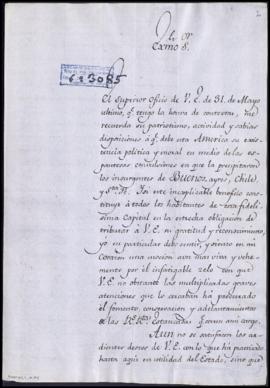 2
Exmo S.
6a3085
El superior Oficio de V.E. de 31. de Mayo
ultimo, qe. tengo la honra de contextar, me
recuerda su patriotismo, actividad y sabias
disposiciones à qe. debe esta America su exis-
tencia politica y moral en medio de las es-
pantosas convulsiones en que la precipitaron
los insurgentes de Buenos-ayres, Chile, y
Por este inexplicable beneficio cons-
tituye à todos los habitantes de esta fideli-
sima Capital en la estrecha obligacion de
tributar à V.E. su gratitud y reconocimiento,
yo en particular debo sentir, y siento en mi
Corazon una mocion aun mas viva y vehe-
mente por el infatigable zelo con que
V.E. no obstante las multiplicadas graves
atenciones que lo rodeaban ha procurado
el fomento, conservacion y adelantamientos
de las Rs. Estancadas de mi cargo.
Aun no se satisfacen los ar-
dientes deseos de V.E. con lo que hà practicado
hasta aqui en utilidad del Estado, sino que